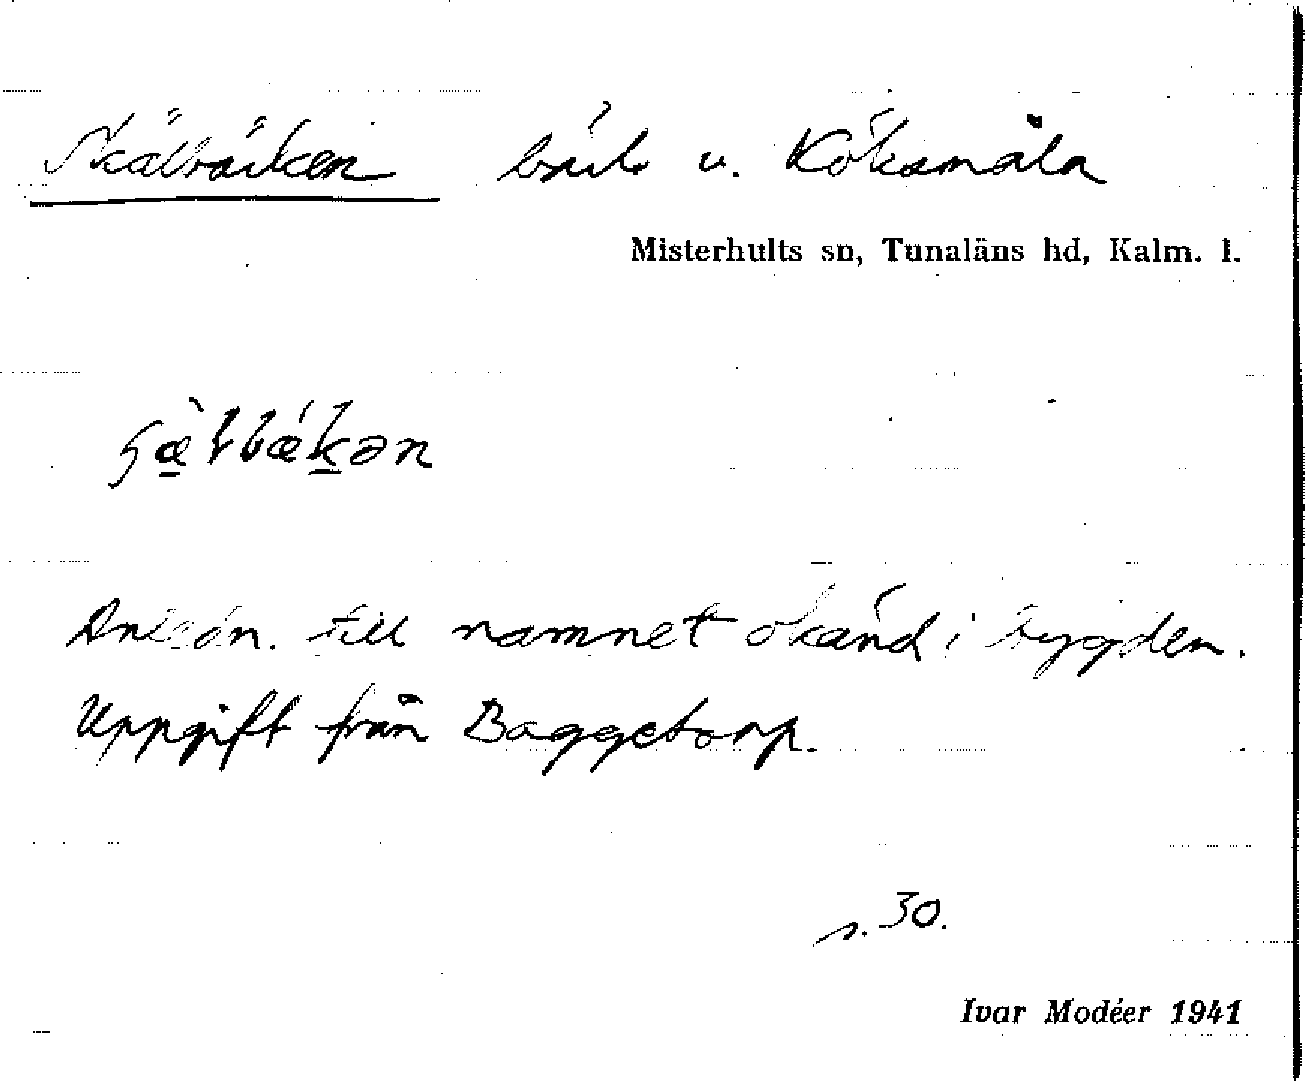 Skälbäcken bäck v. Köksmåla
Misterhults sn, Tunaläns hd, Kalm. l.
Anledn. till namnet okänd i bygden.
Uppgift från Baggetorp.
s. 30.
Ivar Modéer 1941